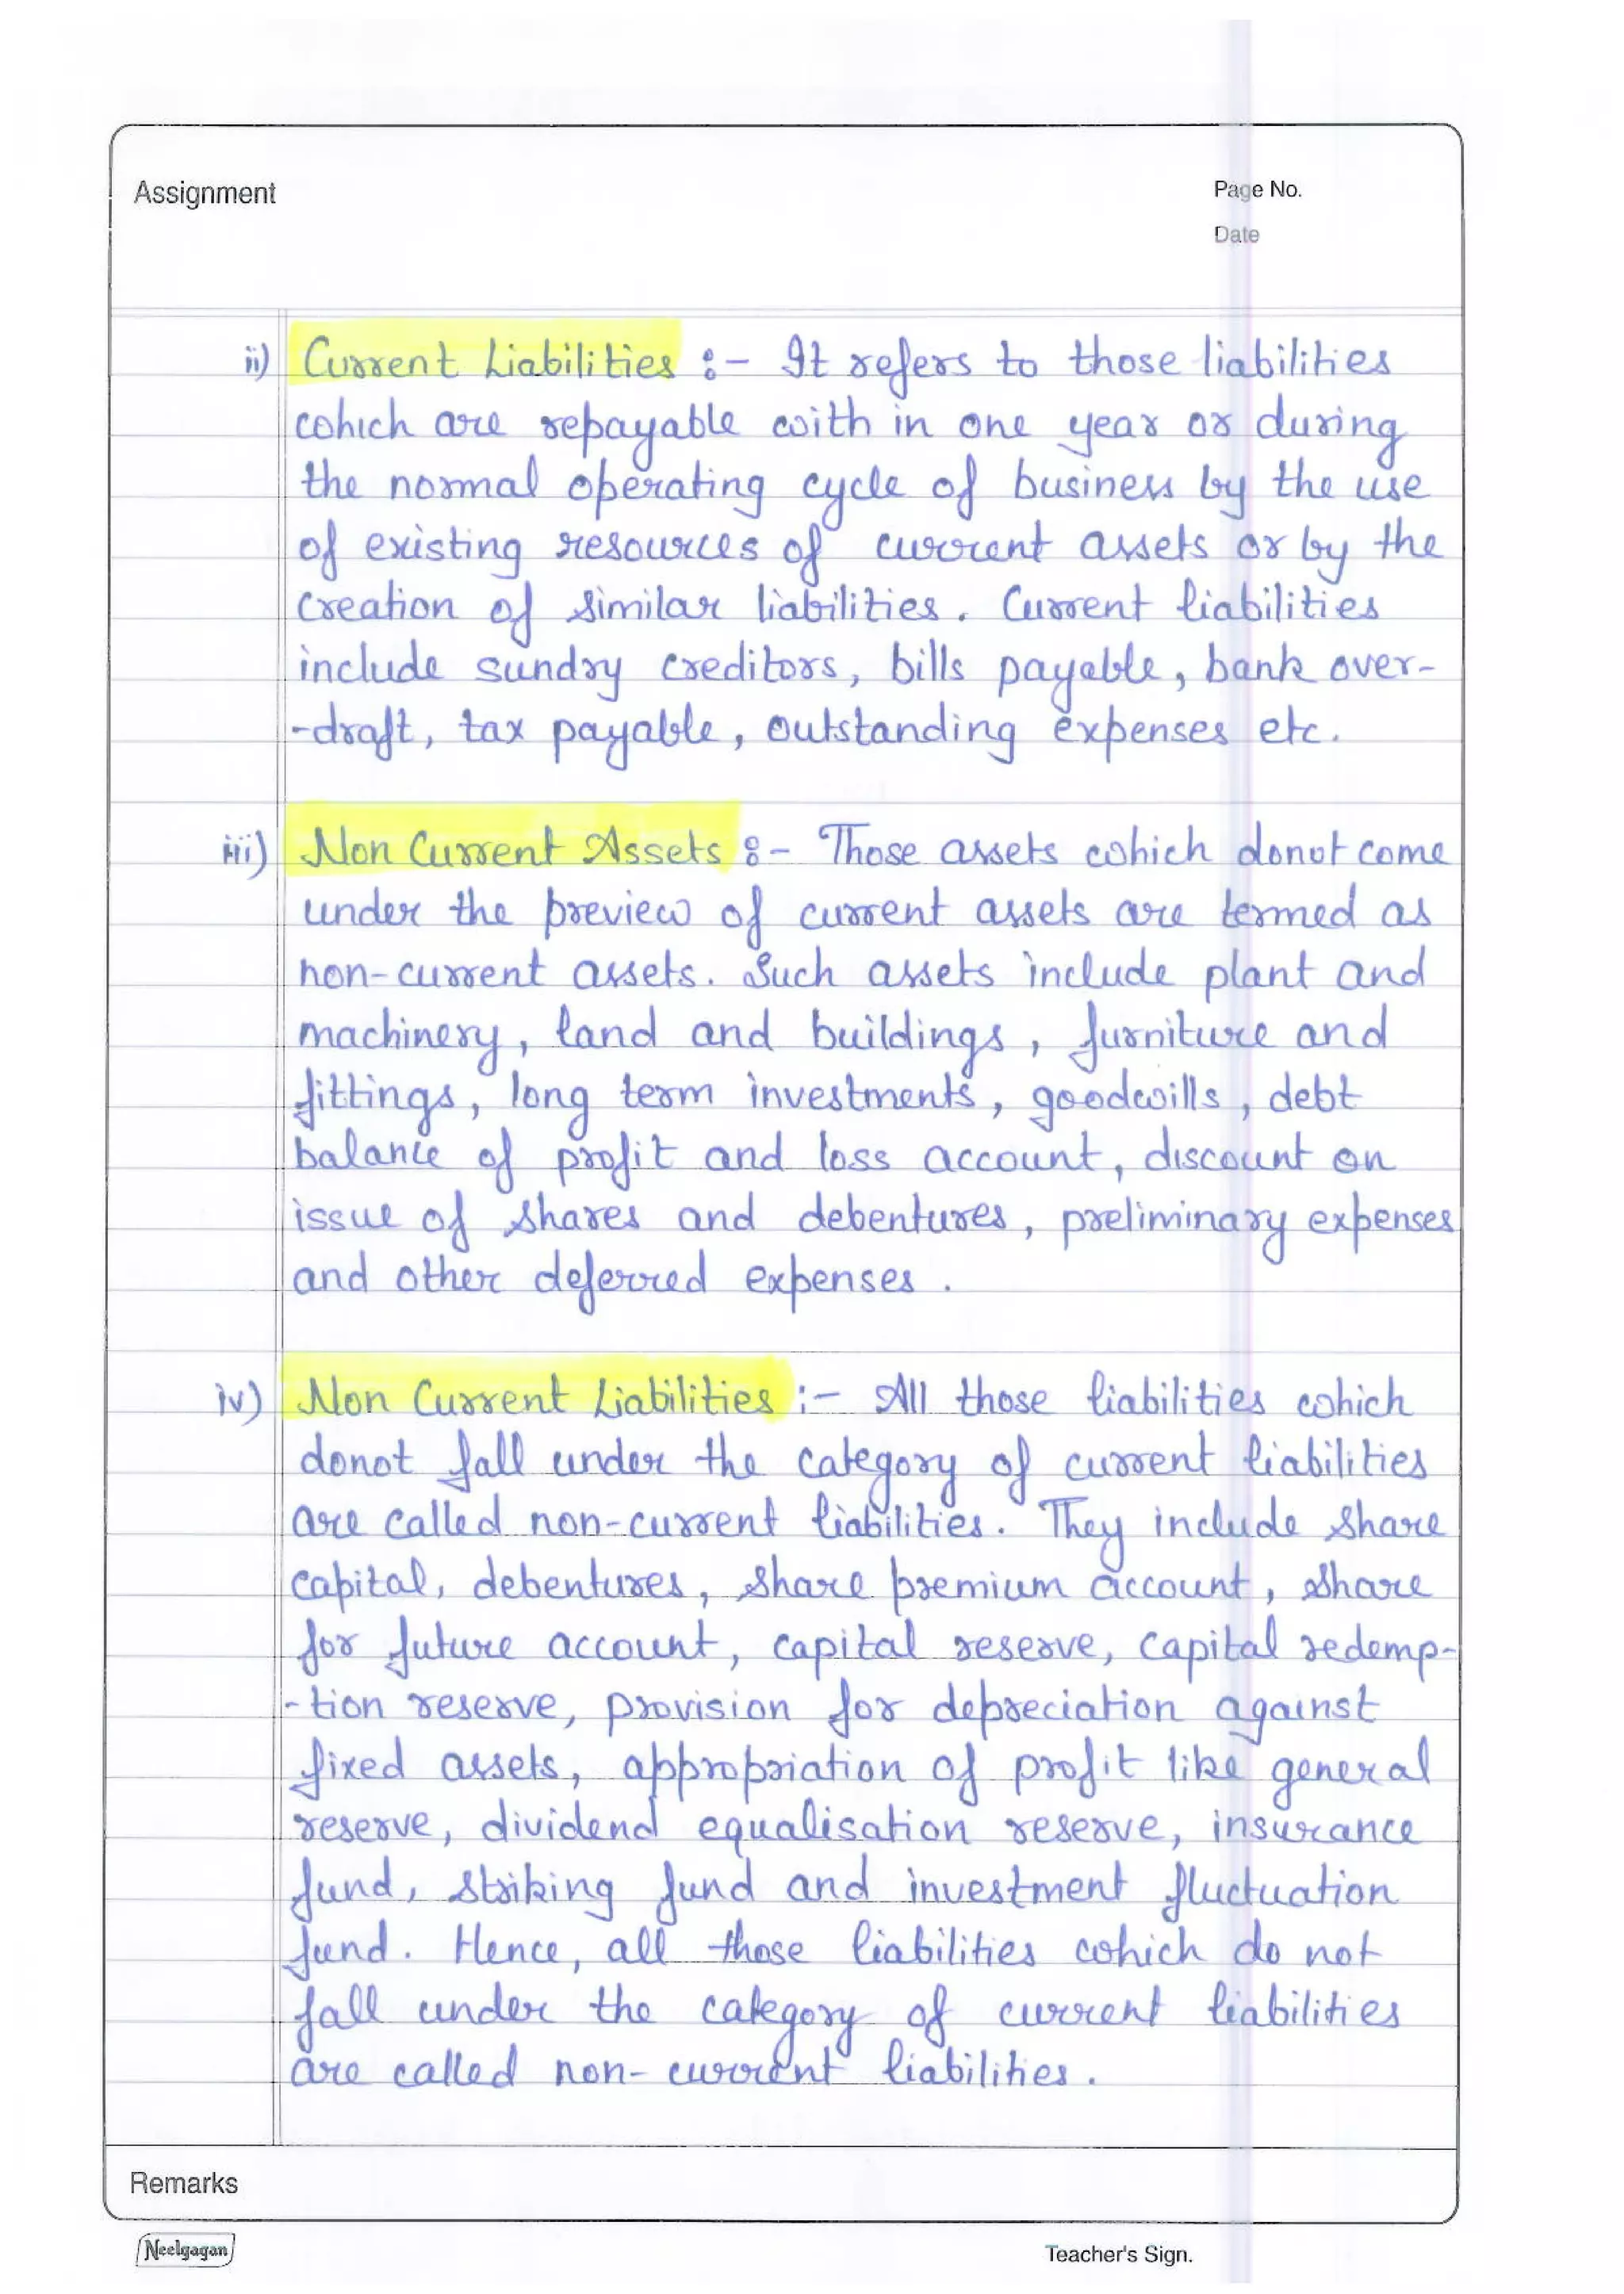 Assignment
Page No.
Date
ii) Current Liabilities :- It refers to those liabilities
which are repayable with in one year or during
the normal operating cycle of business by the use
of existing resources of current assets or by the
creation of similar liabilities. Current liabilities
include sundry creditors, bills payable, bank over-
-draft, tax payable, outstanding expenses etc.
iii) Non Current Assets :- Those assets which donot come
under the preview of current assets are termed as
non-current assets. Such assets include plant and
machinery, land and buildings, furniture and
fittings, long term investments, goodwills, debt
balance of profit and loss account, discount on
issue of shares and debentures, preliminary expenses
and other deferred expenses.
iv) Non Current Liabilities :- All those liabilities which
donot fall under the category of current liabilities
are called non-current liabilities. They include share
capital, debentures, share premium account, share
for future account, capital reserve, capital redemp-
-tion reserve, provision for depreciation against
fixed assets, appropriation of profit like general
reserve, dividend equalisation reserve, insurance
fund, striking fund and investment fluctuation
fund. Hence, all those liabilities which do not
fall under the category of current liabilities
are called non-current liabilities.
Remarks
Neelgagan
Teacher's Sign.